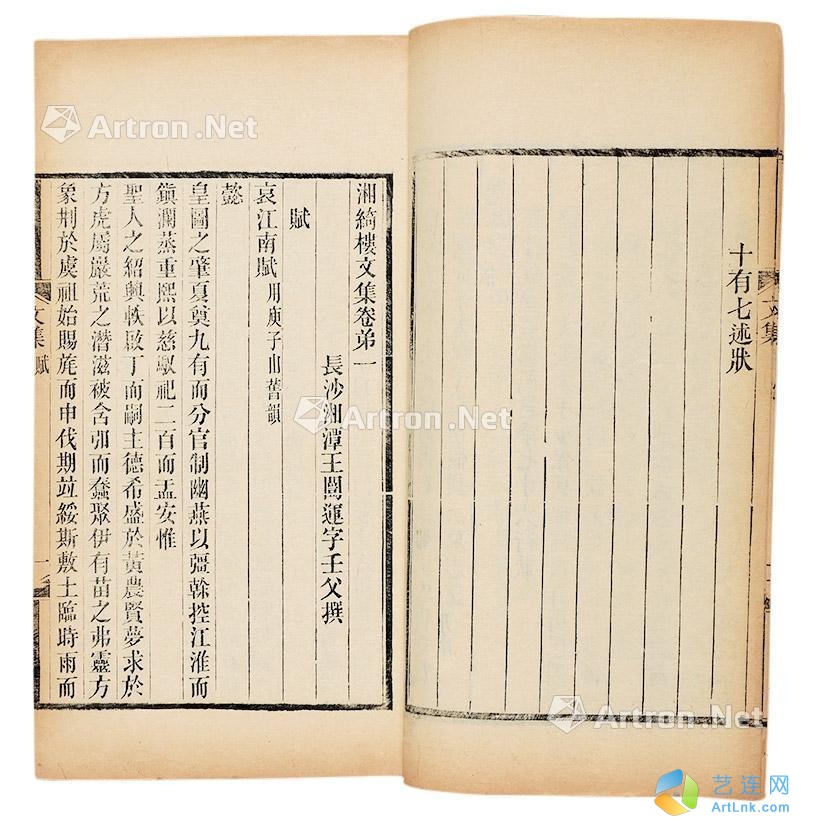 十有七述狀
文集
湘綺樓文集卷弟一
長沙湘潭王闓運字壬父撰
賦
哀江南賦 用庾子山舊韻
懿
皇圖之肇夏奠九有而分官制幽燕以彊榦控江淮而
鎮瀾蒸重熙以慈 祀二百而盂安惟
聖人之紹興軼啟丁而嗣主德希盛於黃農賢夢求於
方虎屬巖荒之潛滋被含邪而蠢聚伊有苗之弗靈方
象荆於虔祖始賜旄而申伐期竝綏斯敷土臨時雨而
文集 賦
一
Artron.Net
Artron.Net
Artron.Net
Artron.Net
艺连网
ArtLnk.com